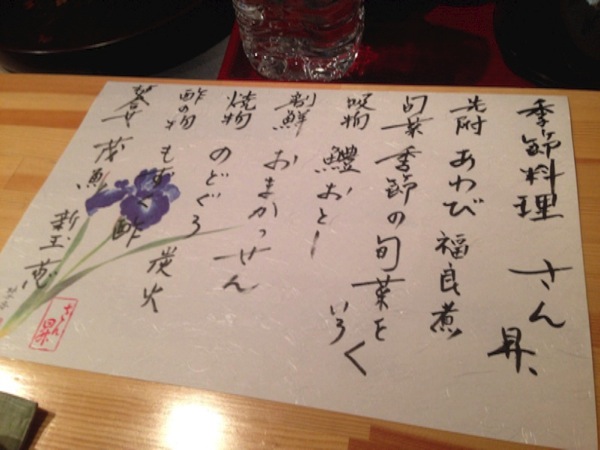 季節料理 さん昇
先附 あわび 福良煮
旬菜 季節の旬菜をいろく
吸物 鱧おとし
割鮮 おまかっせん
焼物 のどぐろ 炭火
酢の物 もずく酢
茂魚 新玉葱
さん昇